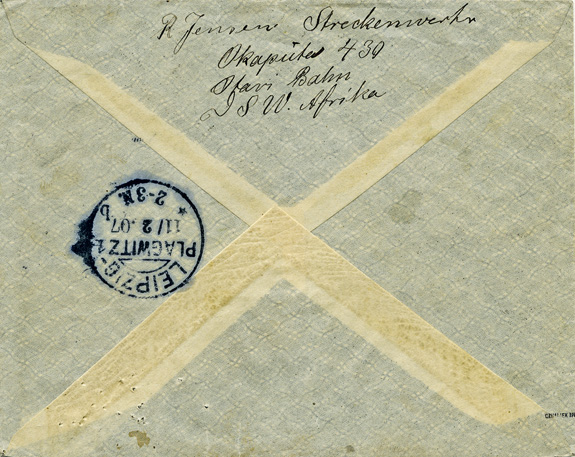 R Jensen Streckenwertr
Okaputa 430
Otavi Bahn
D S W. Afrika
LEIPZIG-
PLAGWITZ 1
11/2.07
2-3N.
b